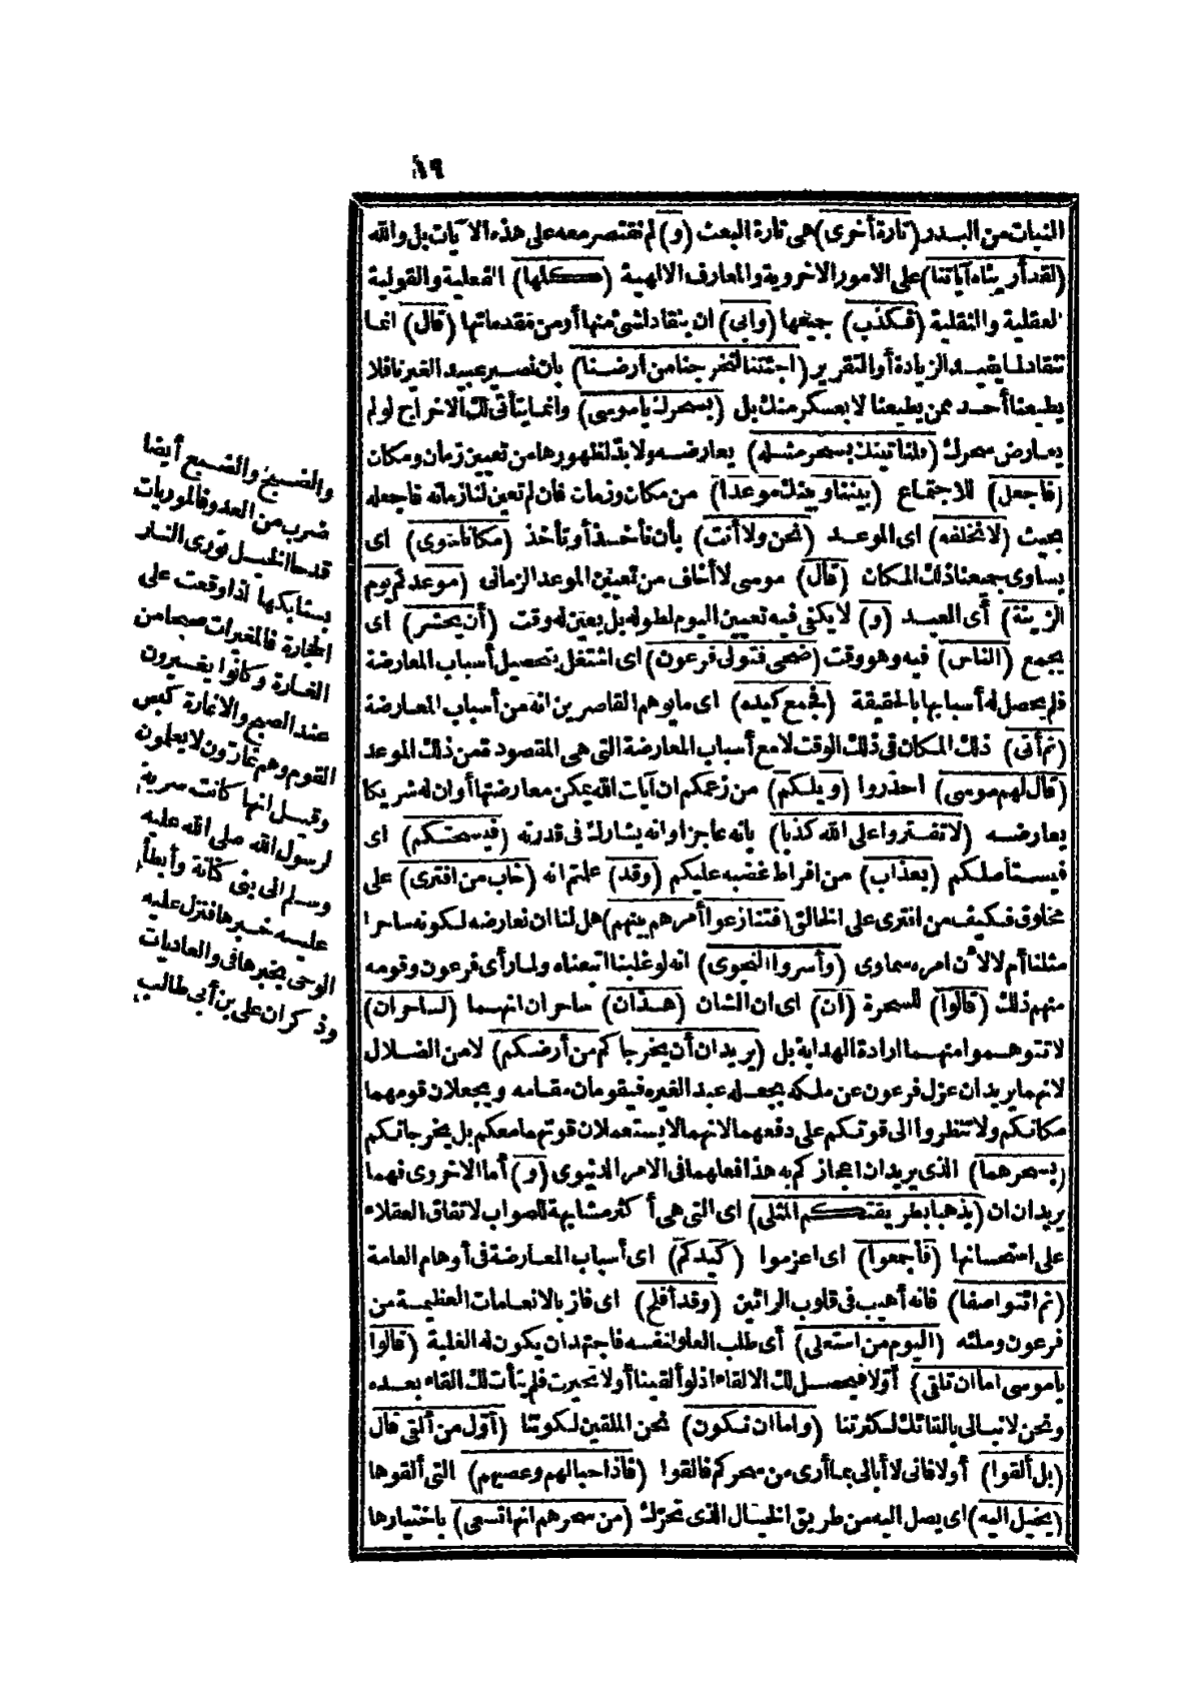 ١٩
النبات من البدر (تارة أخرى) هى تارة البعث (و) لم نقتصر معه على هذه الآيات بل والله
(لقد أريناه آياتنا) على الامور الاخروية والمعارف الالهية (كلها) الفعلية والقولية
العقلية والنقلية (فكذب) جميعها (وابى) ان ينقاد لشئ منها أو من مقدماتها (قال) انما
تنقاد لما يفيد الزيادة أو التقرير (اجئتنا لتخرجنا من أرضنا) بأن نصير عبيد الغير نا فلا
يطيعنا أحد ممن يطيعنا لا بعسكر منك بل (بسحرك يا موسى) وانما يتأتى لك الاخراج لو لم
يعارض سحرك (فلنأتينك بسحر مثله) يعارضه ولا بد لظهورها من تعيين زمان ومكان
(فاجعل) للاجتماع (بيننا وبينك موعدا) من مكان وزمان فان لم تعين لنا زمانه فاجعله
بحيث (لا نخلفه) اى الموعد (نحن ولا أنت) بأن نأخذ أو تأخذ (مكانا سوى) اى
يساوى جميعنا ذلك المكان (قال) موسى لا أخاف من تعيين الموعد الزمانى (موعدكم يوم
الزينة) أى العيد (و) لا يكفى فيه تعيين اليوم لطوله بل يعين له وقت (أن يحشر) اى
يجمع (الناس) فيه وهو وقت (ضحى فتولى فرعون) اى اشتغل بتحصيل أسباب المعارضة
فلم يحصل له أسبابها بالحقيقة (فجمع كيده) اى ما يوهم القاصرين انه من أسباب المعارضة
(ثم أتى) ذلك المكان فى ذلك الوقت لا مع أسباب المعارضة التى هى المقصود ممن ذلك الموعد
(قال لهم موسى) احذروا (ويلكم) من زعمكم ان آيات الله يمكن معارضتها أو ان له شريكا
يعارضه (لا تفتروا على الله كذبا) بانه عاجز او انه يشارك فى قدرته (فيسحتكم) اى
فيستأصلكم (بعذاب) من افراط غضبه عليكم (وقد) علمتم انه (خاب من افترى) على
مخلوق فكيف من افترى على الخالق (فتنازعوا أمرهم بينهم) هل لنا ان نعارضه لكونه ساحرا
مثلنا أم لا لأن امره سماوى (وأسروا النجوى) انه لو غلبنا اتبعناه ولما رأى فرعون وقومه
منهم ذلك (قالوا) للسحرة (ان) اى ان الشان (هذان) ساحران انهما (لساحران)
لا تتوهموا منهما ارادة الهداية بل (يريدان أن يخرجاكم من أرضكم) لا من الضلال
لانهما يريدان عزل فرعون عن ملكه بجعله عبد الغيره فيقومان مقامه ويجعلان قومهما
مكانكم ولا تنظروا الى قوتكم على دفعهما لانهما لا يستعملان قوتهما معكم بل يخرجانكم
(بسحرهما) الذى يريدان اعجازكم به هذا فعلهما فى الامر الدنيوى (و) أما الاخروى فهما
يريدان ان (يذهبا بطريقتكم المثلى) اى التى هى أكثر مشابهة للصواب لاتفاق العقلاء
على استحسانها (فأجمعوا) اى اعزموا (كيدكم) اى أسباب المعارضة فى أوهام العامة
(ثم ائتوا صفا) فانه أهيب فى قلوب الرائين (وقد أفلح) اى فاز بالانعامات العظيمة من
فرعون وملئه (اليوم من استعلى) أى طلب العلو لنفسه فاجتهد ان يكون له الغلبة (قالوا
يا موسى اما ان تلقى) أولا فيحصل لك الالقاء اذ لو ألقينا أولا تحيرت فلم يتأت لك القاء بعده
ونحن لا نبالى بالقائك لكثرتنا (واما ان نكون) نحن الملقين لكوننا (أول من ألقى قال
(بل ألقوا) أولا فانى لا أبالى بما أرى من سحركم فالقوا (فاذا حبالهم وعصيهم) التى ألقوها
(يخيل اليه) اى يصل اليه من طريق الخيال الذى تحرك (من سحرهم انها تسعى) باختيارها
والضبح والضبع أيضا
ضرب من العدو فالموريات
قدحا الخيل تورى النار
بسنابكها اذا وقعت على
الحجارة فالمغيرات صبحا من
الغارة وكانوا يغيرون
عند الصبح والاغارة كبس
القوم وهم غارون لا يعلمون
وقيل انها كانت سرية
لرسول الله صلى الله عليه
وسلم الى بنى كنانة وأبطأ
عليه خبرها فنزل عليه
الوحى بخبرها فى والعاديات
وذكر ان على بن أبى طالب